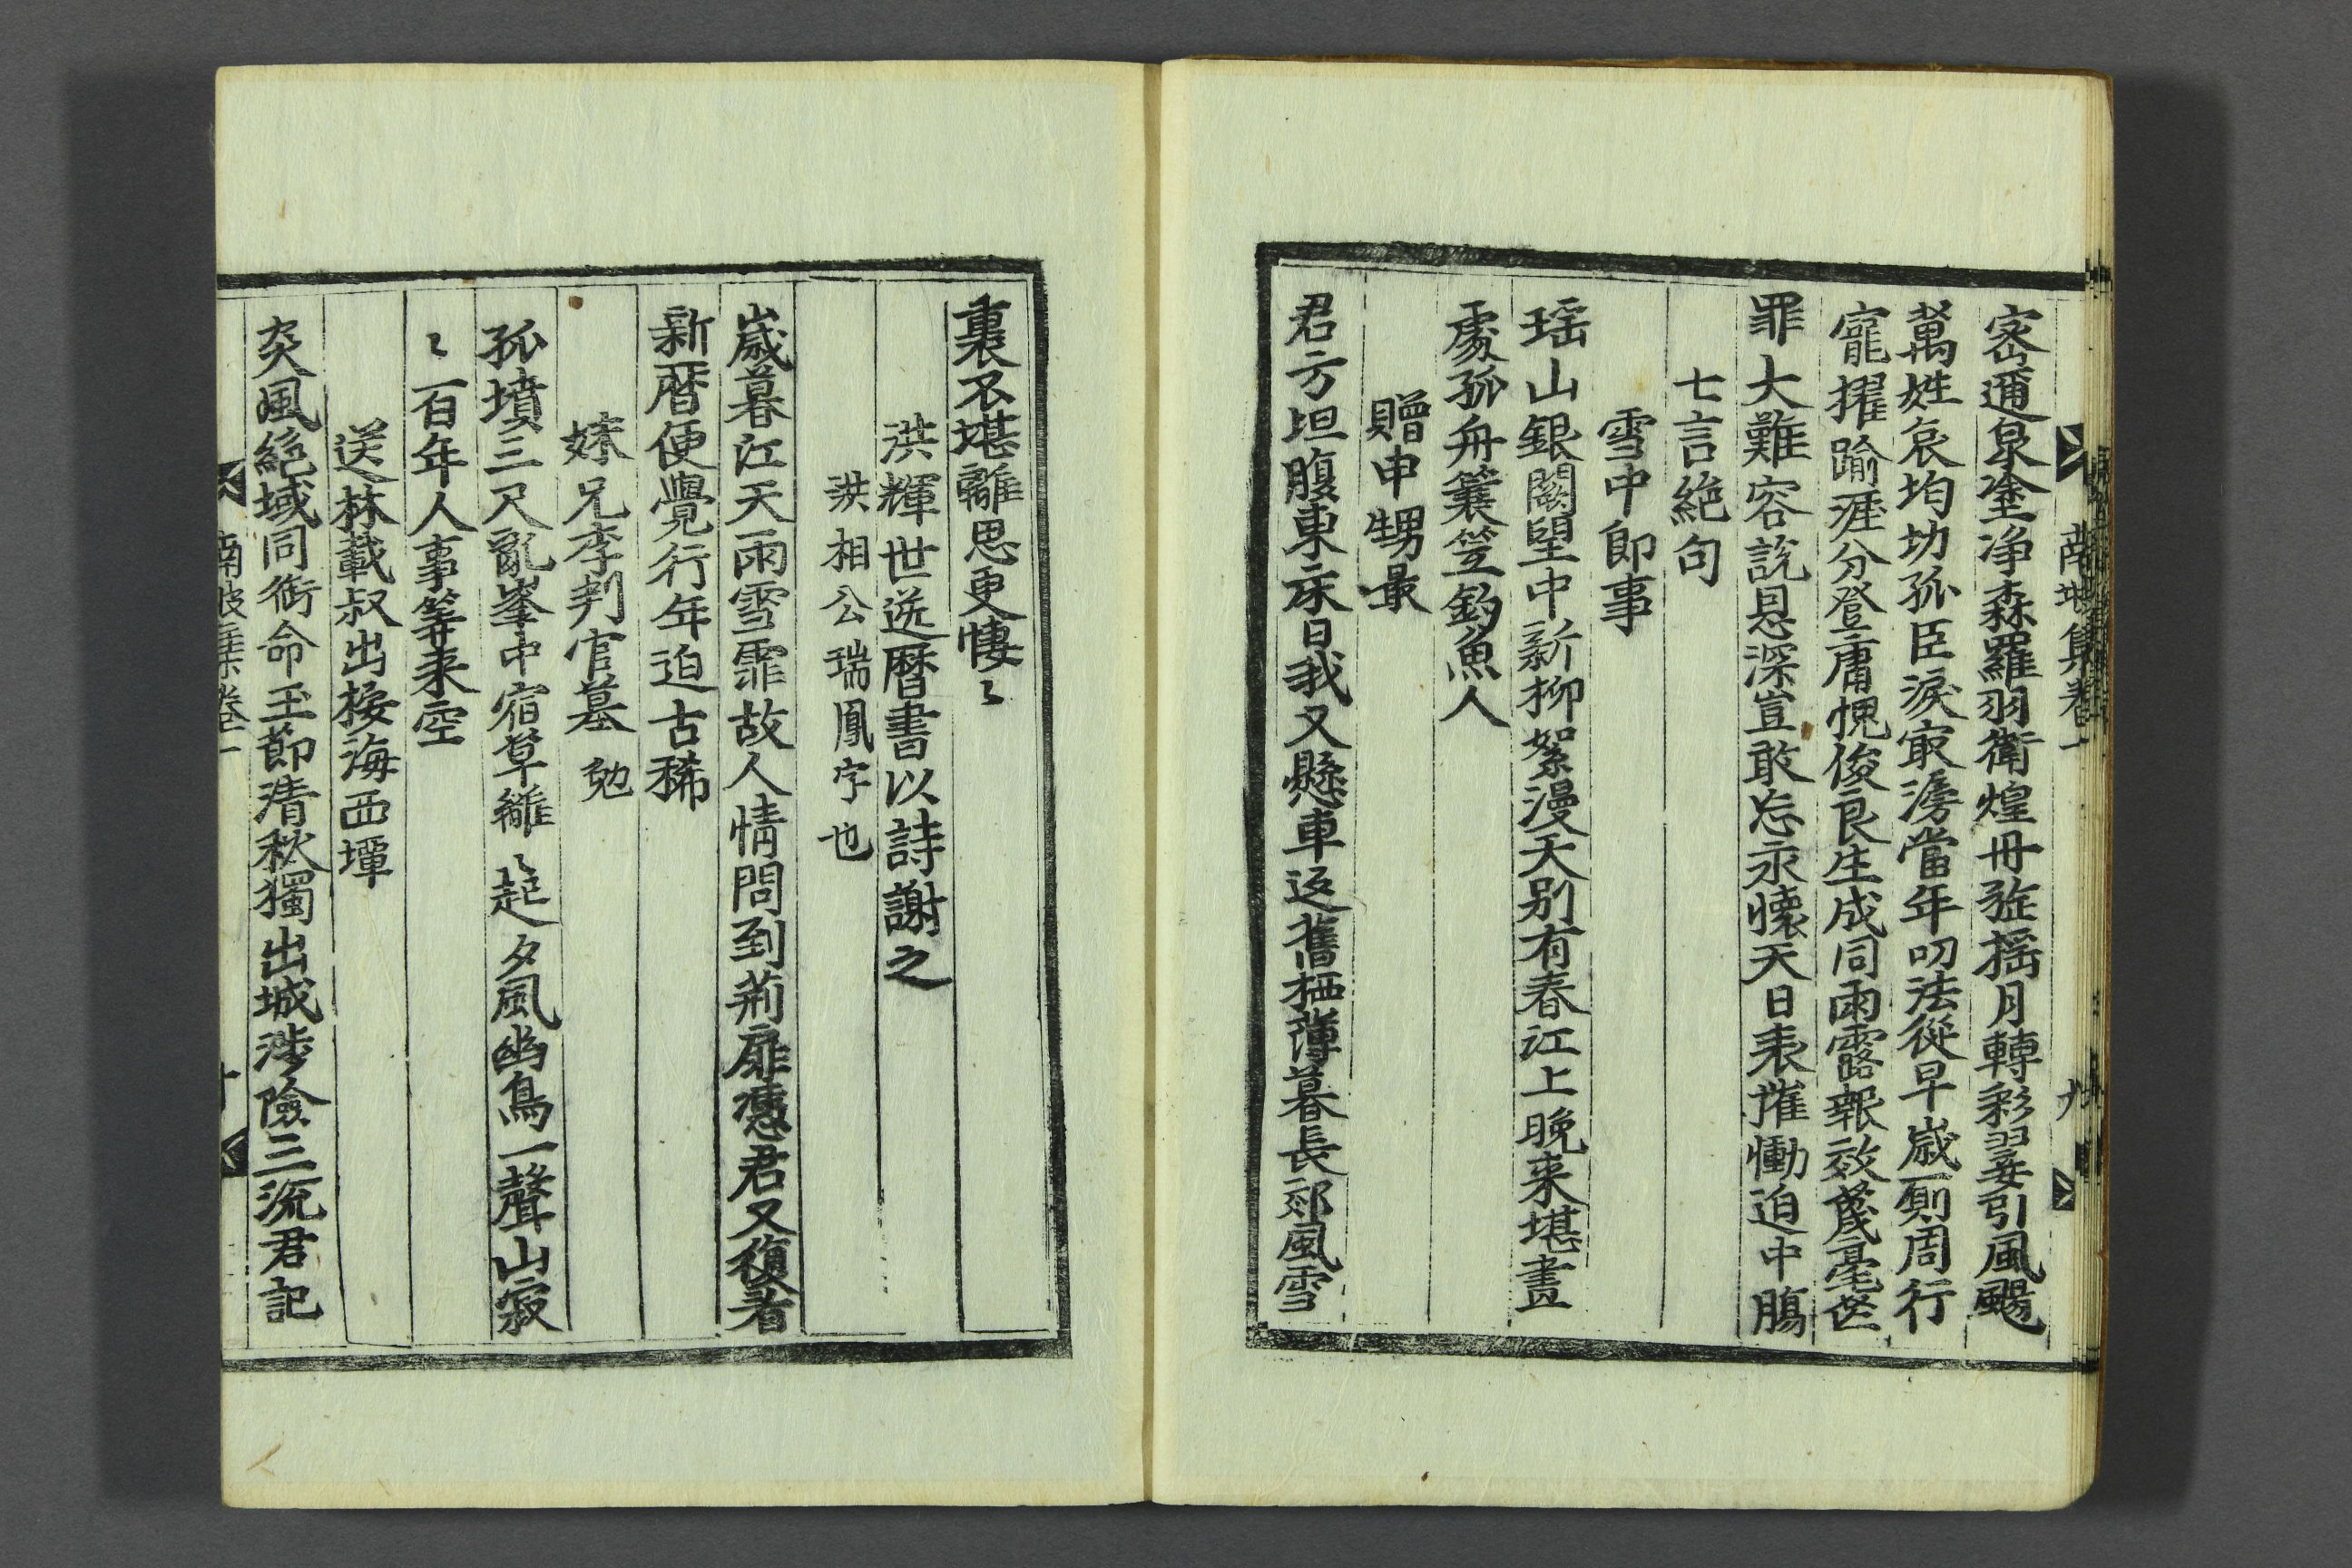 密邇泉塗净森羅羽衛煌丹旌搖月轉彩翣引風颺
萬姓哀均切孤臣淚㝡滂當年叨法從早歲厠周行
寵擢踰涯分登庸愧俊良生成同雨露報效蔑毫芒
罪大難容說恩深豈敢忘永懷天日表摧慟迫中膓
七言絶句
雪中即事
瑶山銀闕望中新柳絮漫天别有春江上晚来堪畫
處孤舟簑笠釣魚人
贈申甥最
君方坦腹東床日我又懸車返舊栖薄暮長郊風雪
南坡集卷一
九
裏不堪離思更悽〻
洪輝世送曆書以詩謝之
洪相公瑞鳳字也
歲暮江天雨雪霏故人情問到荊扉憑君又復看
新曆便覺行年迫古稀
妹兄李判官墓 勉
孤墳三尺亂峯中宿草離〻起夕風幽鳥一聲山寂
〻百年人事筭来空
送林載叔出接海西墠
炎風絶域同銜命玉節淸秋獨出城涉險三流君記
南坡集卷一
十